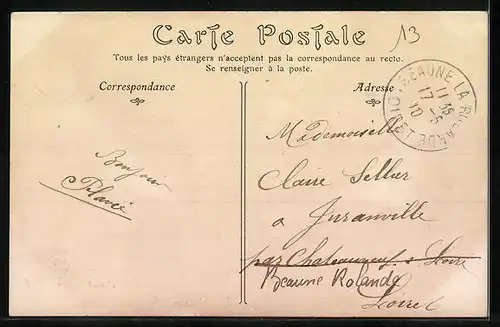 Carte Postale
13
Tous les pays étrangers n'acceptent pas la correspondance au recto.
Se renseigner à la poste.
Correspondance
Adresse
BEAUNE LA ROLANDE LOIRET
11 35
17 -6
10
Mademoiselle
Claire Sellier
à Juranville
par Chateauneuf s Loire
Beaune Rolande
Loiret
Bonjour